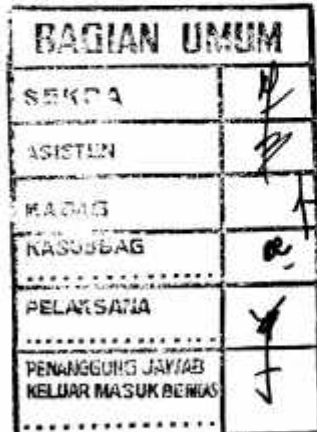 BAGIAN UMUM
SEKDA
ASISTEN
KABAG
KASUBBAG
..............
PELAKSANA
..............
PENANGGUNG JAWAB
KELUAR MASUK BERKAS
..............